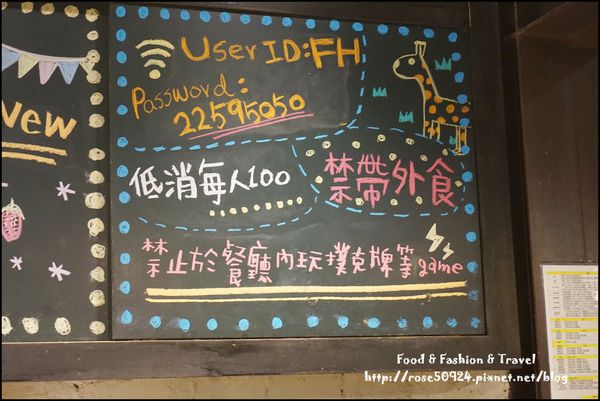 User ID:FH
Password:
22595050
new
低消每人100
禁帶外食
禁止於餐廳內玩撲克牌等game
Food & Fashion & Travel
http://rose50924.pixnet.net/blog